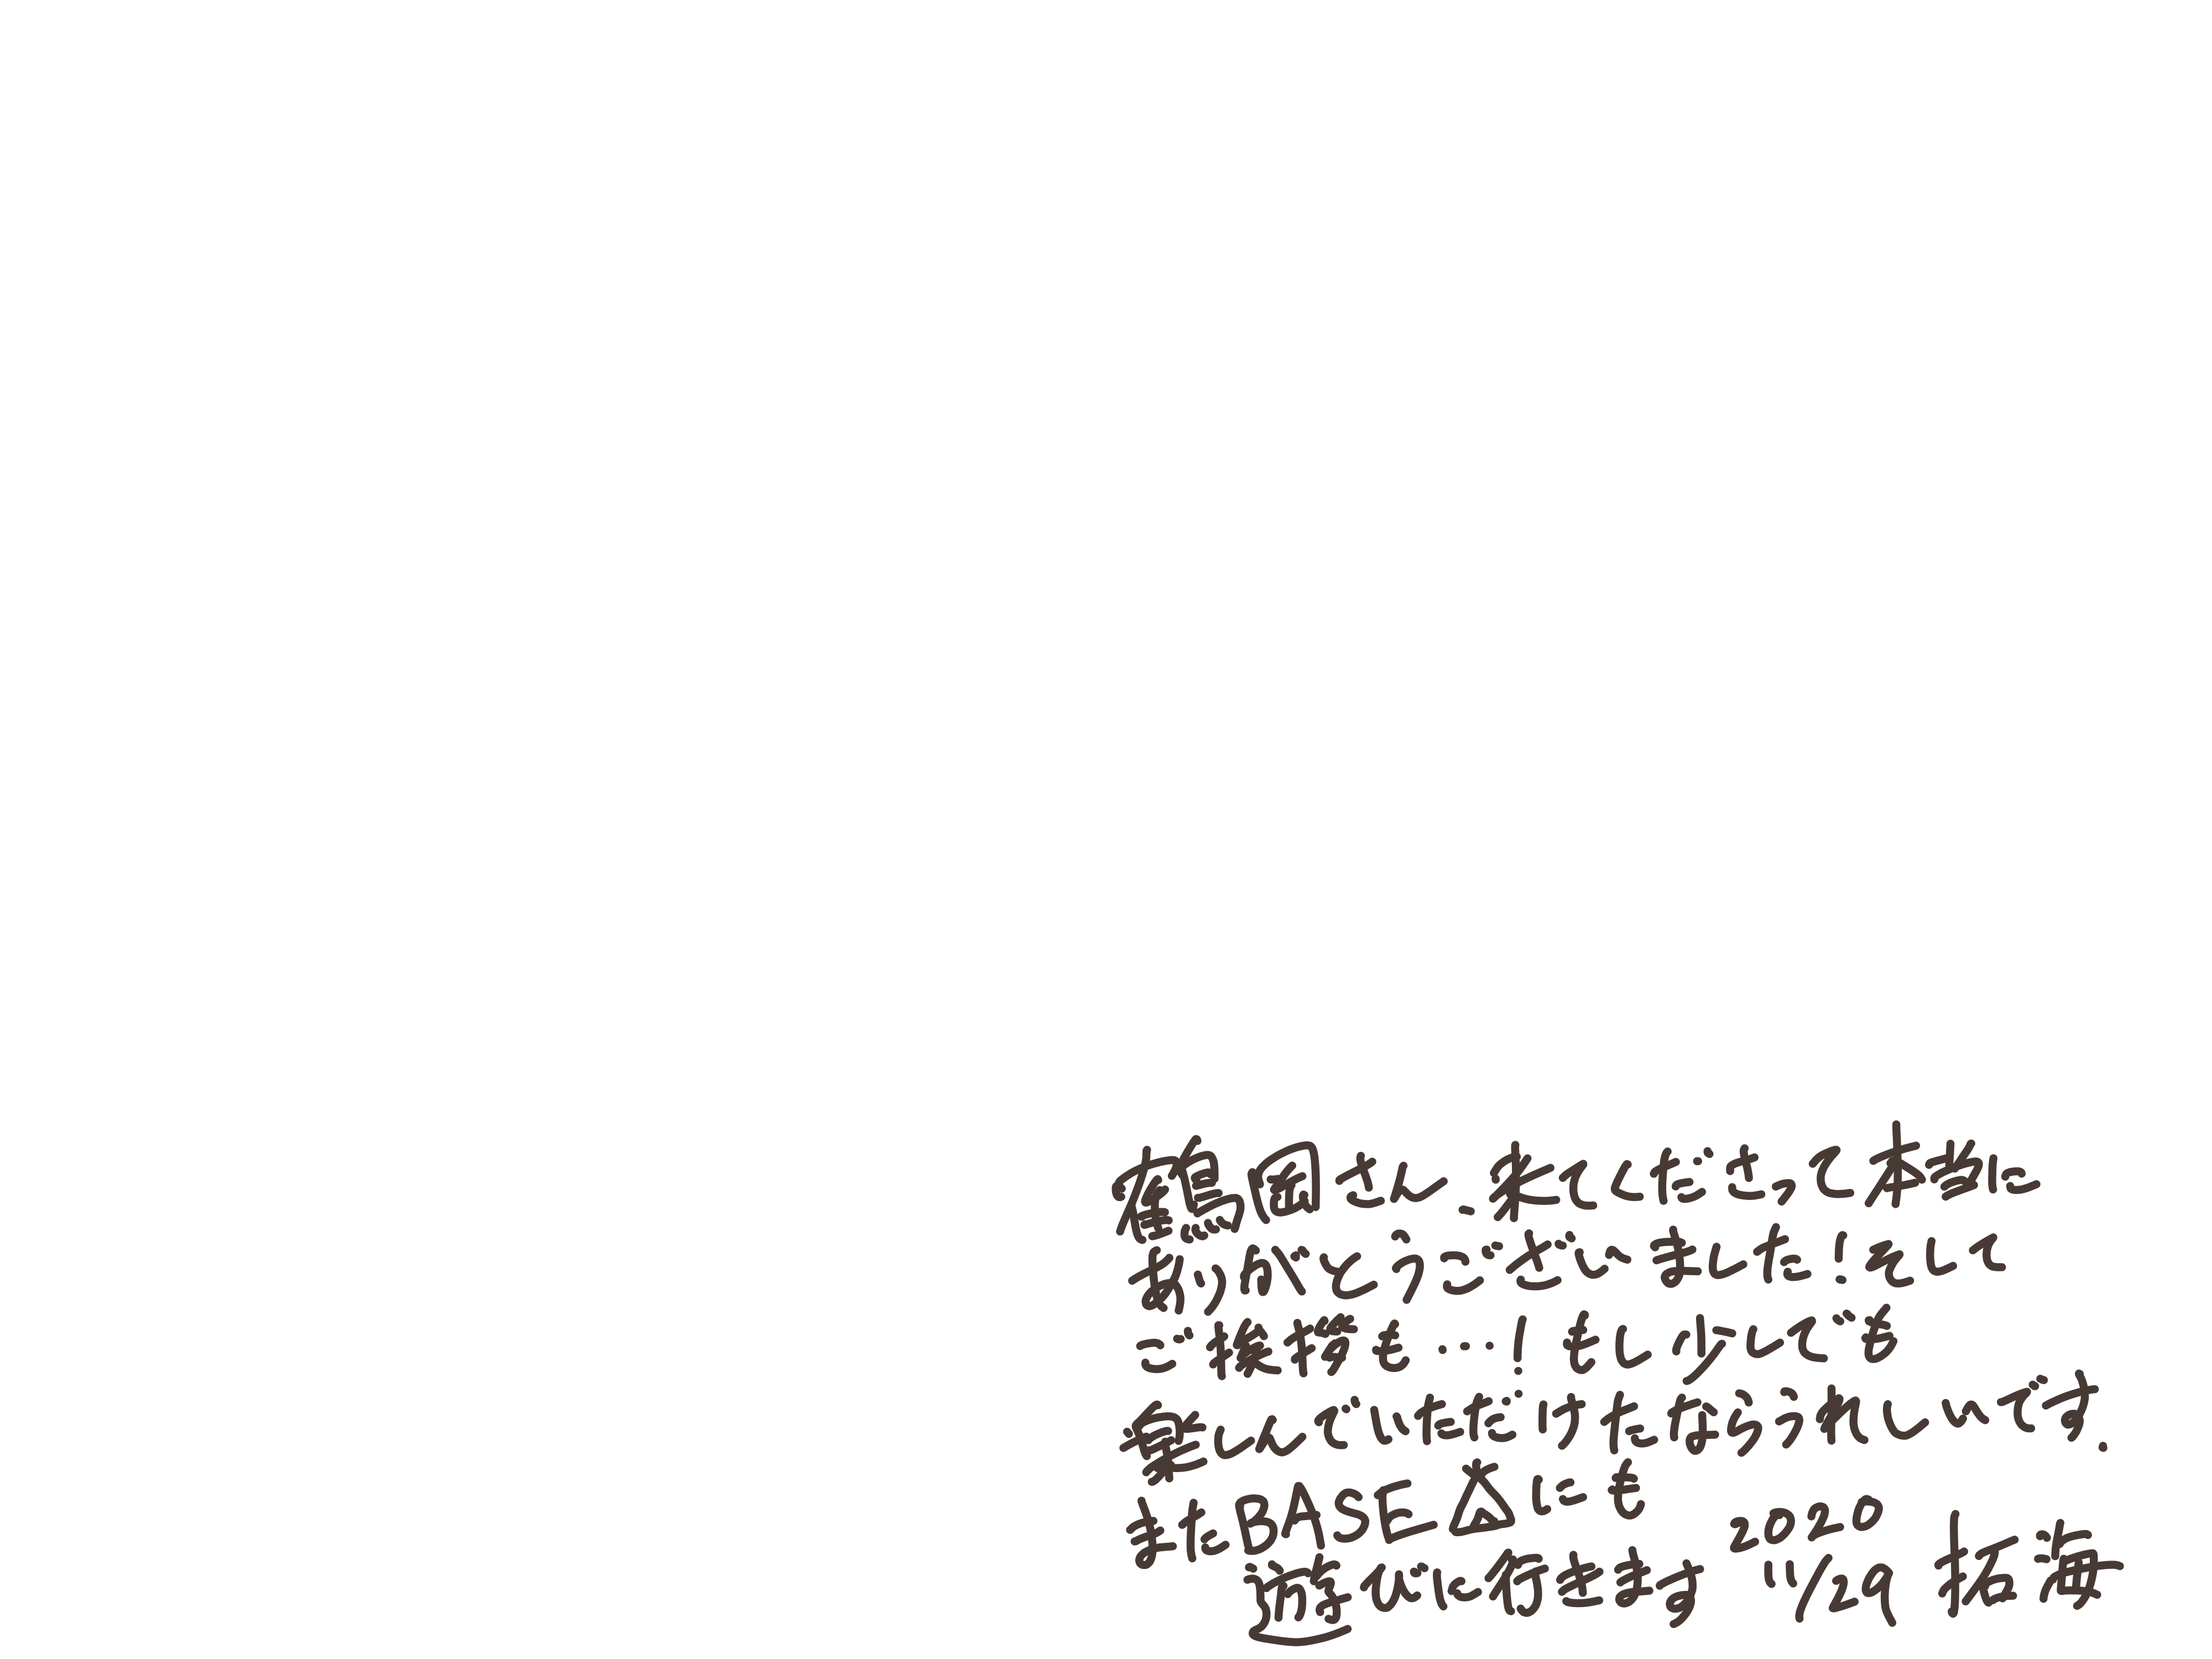 鶴岡さん、来てくださって本当に
ありがとうございました！そして
ご被撮も…！もし少しでも
楽しんでいただけたならうれしいです。
またBASE△にも
遊びに行きます 2020 11/29 拓海